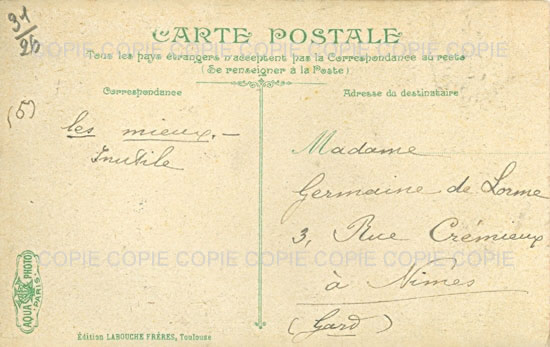 31/26
CARTE POSTALE
Tous les pays étrangers n'acceptent pas la Correspondance au recto
(Se renseigner à la Poste)
Correspondance
Adresse du destinataire
(5)
les mieux.—
Inutile
Madame
Germaine de Lorme
3, Rue Crémieux
à Nîmes
(Gard)
COPIE COPIE COPIE COPIE COPIE COPIE COPIE
COPIE COPIE COPIE COPIE COPIE COPIE COPIE
AQUA PHOTO
PARIS
Édition LABOUCHE FRÈRES, Toulouse